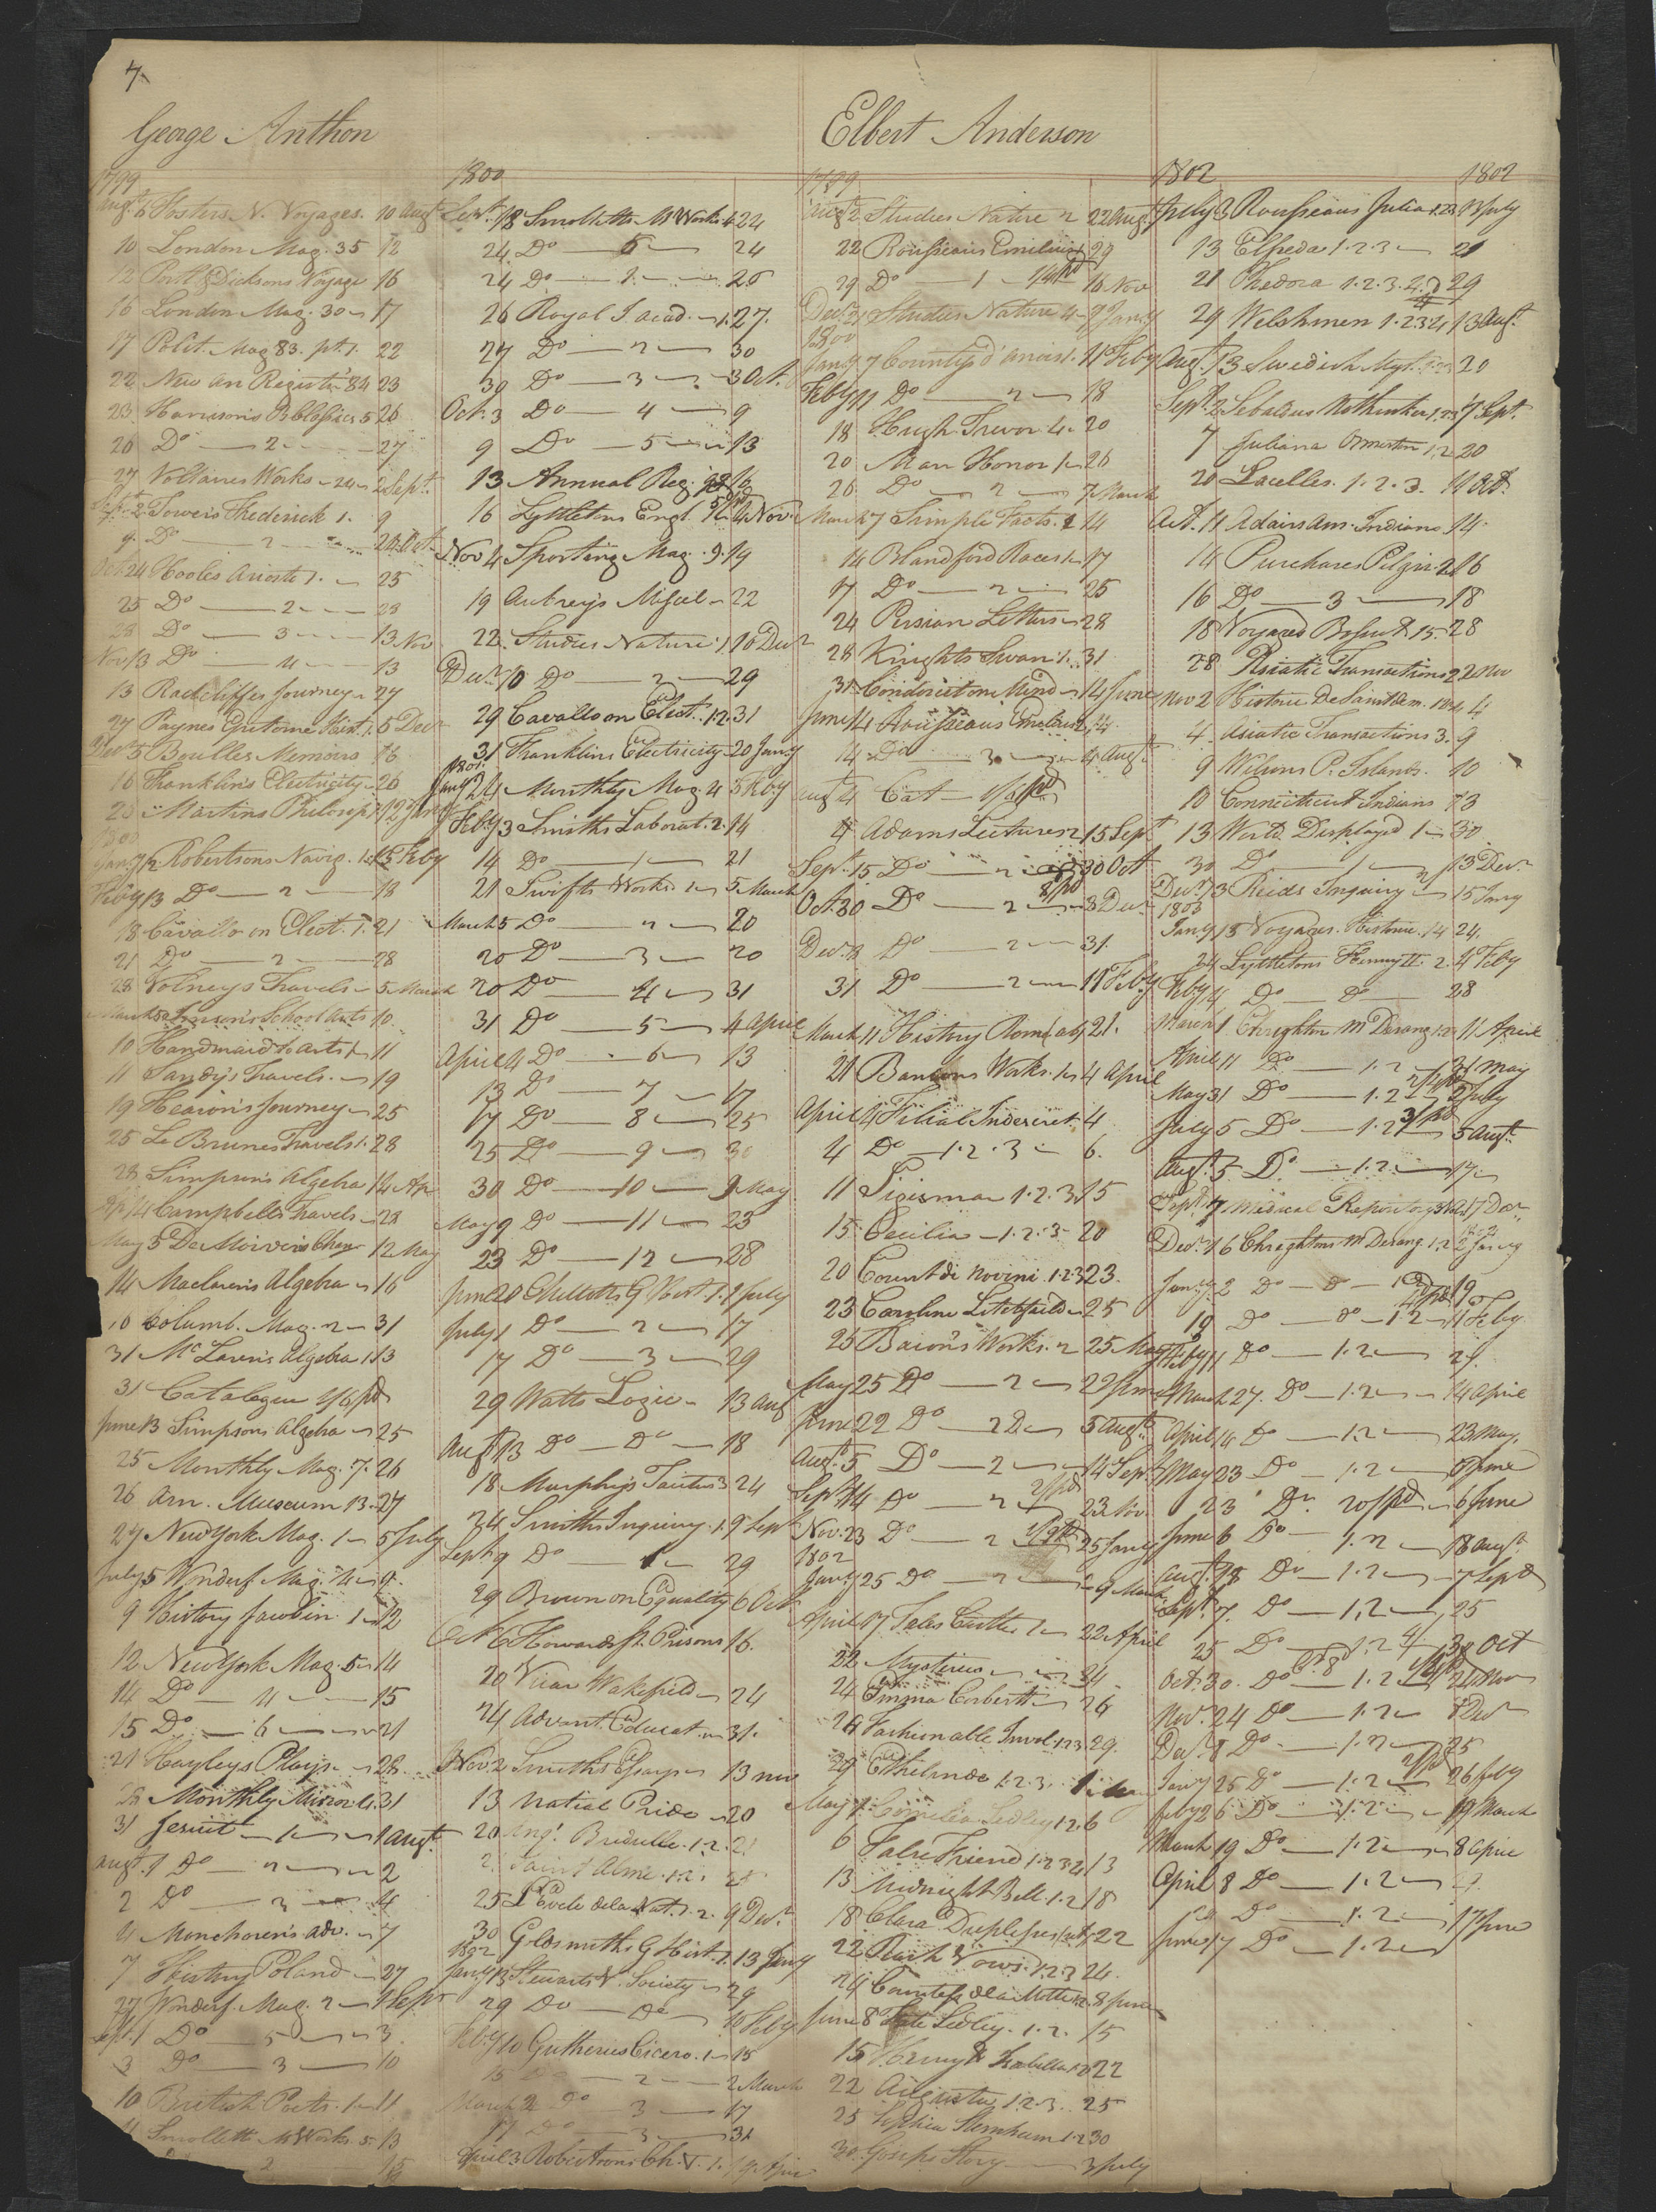 7
George Anthon
1799
Augt 6 Fosters N. Voyages. 10 Augt
10 London Mag. 35 12
12 Portl & Dicksons Voyage 16
16 London Mag. 30 17
17 Polit. Mag 83. pt. 1. 22
22 New An Register 84 23
23 Harrison's B Classics 5 26
26 Do 2 27
27 Voltaires Works 24 2 Sept.
Sept. 2 Towers Frederick 1. 9
9 Do 2 24 Oct
Oct 24 Hooles Ariosto 1. 25
25 Do 2 28
28 Do 3 13 Nov
Nov 13 Do 4 13
13 Radcliffes Journey 27
27 Paynes Epitome Hist. 1. 5 Decr
Decr 5 Boulles Memoirs 16
16 Franklin's Electricity 26
26 Martins Philosop 1 12 Jany
1800
Jany 12 Robertsons Navig. 1 13 Feby
Feby 13 Do 2 18
18 Cavallo on Elect. 1. 21
21 Do 2 28
28 Volney's Travels 5 March
March 5 School Arts 10
10 Handmaid to Arts 1 11
11 Sandy's Travels. 19
19 Hearon's Journey 25
25 Le Brunes Travels 1. 28
28 Simpson's Algebra 14 Ap
Ap 14 Campbells Travels 28
May 5 De Moivers Chan 12 May
14 Maclaren's Algebra 16
16 Columb. Mag. 2 31
31 McLaren's Algebra 1 13
31 Catalogue 1/6 pd
June 13 Simpsons Algebra 25
25 Monthly Mag. 7. 26
26 Am. Museum 13. 27
27 New York Mag. 1 5 July
July 5 Wonderf. Mag. 4 9
9 History Jacobin. 1 12
12 New York Mag. 5 14
14 Do 4 15
15 Do 6 21
21 Hayleys Plays 28
28 Monthly Mirror 4. 31
31 Jesuit 1 1 Augt
Augt. 1 Do 2 2
2 Do 3 4
4 Monchoren's adv. 7
7 History Poland 27
27 Wonderf. Mag. 2 1 Sepr
Sept. 1 Do 5 3
3 Do 3 10
10 British Poets. 1 11
11 Smollett M Works. 5. 13
2 15
1800
Sept. 18 Smolletts M Works 4 24
24 Do 6 24
24 Do 1 26
26 Royal I. Acad. 1. 27.
27 Do 2 30
30 Do 3 3 Oct.
Oct. 3 Do 4 9
9 Do 5 13
13 Annual Reg. 92 16
16 Lyttletons Engl. 4 Nov
Nov 4 Sporting Mag. 9. 19
19 Aubreys Miscel 22
22 Studies Nature 1 10 Decr
Decr 10 Do 2 29
29 Cavallo on Elect. 1.2. 31
31 Franklins Electricity 20 Jany
1801
Jany 24 Monthly Mag. 4 3 Feby
Feby 3 Smiths Laborat. 2. 14
14 Do 1 21
21 Swifts Works 1 5 March
March 5 Do 2 20
20 Do 3 20
20 Do 4 31
31 Do 5 4 April
April 4 Do 6 13
13 Do 7 17
17 Do 8 25
25 Do 9 30
30 Do 10 9 May
May 9 Do 11 23
23 Do 12 28
June 20 Millotts G Hist. 1. 1 July
July 1 Do 2 17
17 Do 3 29
29 Watts Logic 13 Aug
Augt 13 Do Do 18
18 Murphy's Tacitus 3 24
24 Smiths Inquiry 1. 9 Sept
Sept 9 Do 1 29
29 Brown on Equality 6 Oct
Oct 6 Howards St. Prisons 16.
20 Vicar Wakefield 24
24 Advant. Educat. 31.
Nov. 2 Smiths Essays 13 nov
13 Natial Pride 20
20 Bredville. 1.2. 21
2 Saint Alme. 1.2. 25
25 L'Ecole de la Nat. 1.2. 9 Decr
30 Goldsmiths G Hist. 1. 13 Jany
1802
Jany 13 Stewarts V. Society 29
29 Do Do 10 Feby
Feby 10 Gutheries Cicero. 1 15
15 Do 2 2 March
March 2 Do 3 17
17 Do 3 31
April 3 Robertsons Ch. V. 1.
Elbert Anderson
1799
Augt 2 Studies Nature 2 22 Augt.
22 Rousseaus Emilius 29
29 Do 1 16 Nov
Decr 21 Studies Nature 4 7 Jany
1800
Jany 7 Countess d'anois 1. 11 Feby
Feby 11 Do 2 18
18 Hugh Trevor 4. 20
20 Man Honor 1 26
26 Do 2 7 March
March 7 Simple Facts. 2 14
14 Blandford Races 1 17
17 Do 2 25
24 Persian Letters 28
28 Knights Swan 1. 31
31 Condorcet on Mind 14 June
June 14 Rousseaus 2 14
14 Do 3 4 Augt.
Augt 4 Cat 1/6 pd
4 Adams Lectures 2 15 Sept
Sept. 15 Do 2 30 Oct
Oct. 30 Do 2 3 Decr
Decr. 3 Do 2 31.
31 Do 2 11 Feby
March 11 History Rome 21.
21 Works. 1 4 April
April 4 Filial Indescret. 4
4 Do 1.2.3 6.
11 Sigismar 1.2.3. 15
15 Cecilia 1.2.3 20
20 Count di Novini. 1.2.3 23.
23 Caroline Litchfield 25
25 Bacon's Works. 2 25 May
May 25 Do 2 22 June
June 22 Do 2 5 Augt
Augt. 5 Do 2 14 Sept
Sept 14 Do 2 23 Nov.
Nov. 23 Do 2 25 Jany
1802
Jany 25 Do 2 9 March
April 17 Tales Castle 1 22 April
22 Mysteries 24
24 Emma Corbertt 26
26 Fashionable Invol. 1.2.3 29.
29 Ethelinde 1.2.3. 1
May 1. Cornelia Sedley 1.2. 6
6 False Friend 1.2.3.4 13
13 Midnight Bell 1.2 18
18 Clara Duplessis 22
22 Rash Vows. 1.2.3 24.
24 Countess de la Motte 1.2. 8 June
June 8 Kate Sedley. 1.2. 15
15 Henry & Isabella 1.2 22
22 Augusta 1.2.3. 25
25 Sophia Sternheim 1.2 30
30 Gossips Story 3 July
1802 1802
July 3 Rousseaus Julia 1.2.3 13 July
13 Elfreda 1.2.3 21
21 Thedora 1.2.3.4. 29
29 Welshmen 1.2.3.4 13 Augt.
Augt. 13 Swedish Myst. 1.2.3 20
Sept. 2 Sebaldus Nothanker 1.2.3 7 Sept.
7 Juliana Ormeston 1.2 20
20 Lacelles. 1.2.3. 11 Oct.
Oct. 11 Adairs Am. Indians 14.
14 Purchases Pilgri. 2 16
16 Do 3 18
18 Voyages 15. 28
28 Asiatic Transactions 2 2 Nov
Nov 2 Histoire 4
4 Asiatic Transactions 3. 9
9 Wilsons P. Islands. 10
10 Connecticut Indians 13
13 World Displayed 1 30
30 Do 1 13 Decr
Decr. 13 Reids Inquiry 15 Jany
1803
Jany 15 Voyages. Histoire. 14 24.
24 Lyttletons Henry II. 2. 4 Feby
Feby 4 Do Do 28
March 1 Chreghton M Derang 1.2 11 April
April 11 Do 1.2 31 May
May 31 Do 1.2 5 July
July 5 Do 1.2 5 Augt.
Augt. 5 Do 1.2. 17
Sept. 7 Medical Repository 17 Decr
Decr. 16 Chreghtons M Derang. 1.2 2 Jany
Jany. 2 Do Do 1.2 19
19 Do Do 1.2 11 Feby
Feby 11 Do 1.2 27.
March 27. Do 1.2 14 April
April 14 Do 1.2 23 May.
May 23 Do 1.2 6 June
23 Do 20/pd 6 June
June 6 Do 1.2 18 Augt.
Augt. 18 Do 1.2 7 Sept
Sept. 7. Do 1.2 25
25 Do 1.2 30 Oct
Oct. 30. Do 1.2 24 Nov
Nov. 24 Do 1.2 8 Decr
Decr. 8 Do 1.2 25
Jany 25 Do 1.2 26 feby
feby 26 Do 1.2 19 March
March 19 Do 1.2 8 Aprie
April 8 Do 1.2
Do 1.2 17 June
June 17 Do 1.2